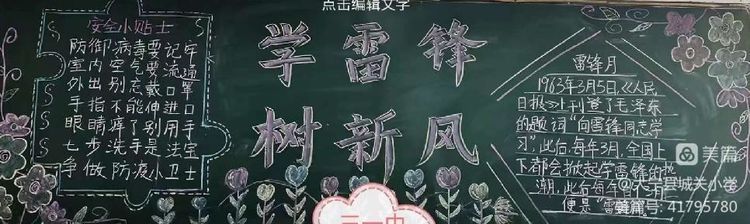 点击编辑文字
安全小贴士
防御病毒要记牢
室内空气要流通
外出别忘戴口罩
手指不能伸进口
眼睛痒了别用手
七步洗手是法宝
争做防疫小卫士
学雷锋
树新风
雷锋月
1963年3月5日,《人民
日报》上刊登了毛泽东
的题词"向雷锋同志学
习",此后,每年3月,全国上
下都会掀起学雷锋的热
潮,此后每年
便是"雷
三一中
美篇
县城关小学
美篇号: 41795780